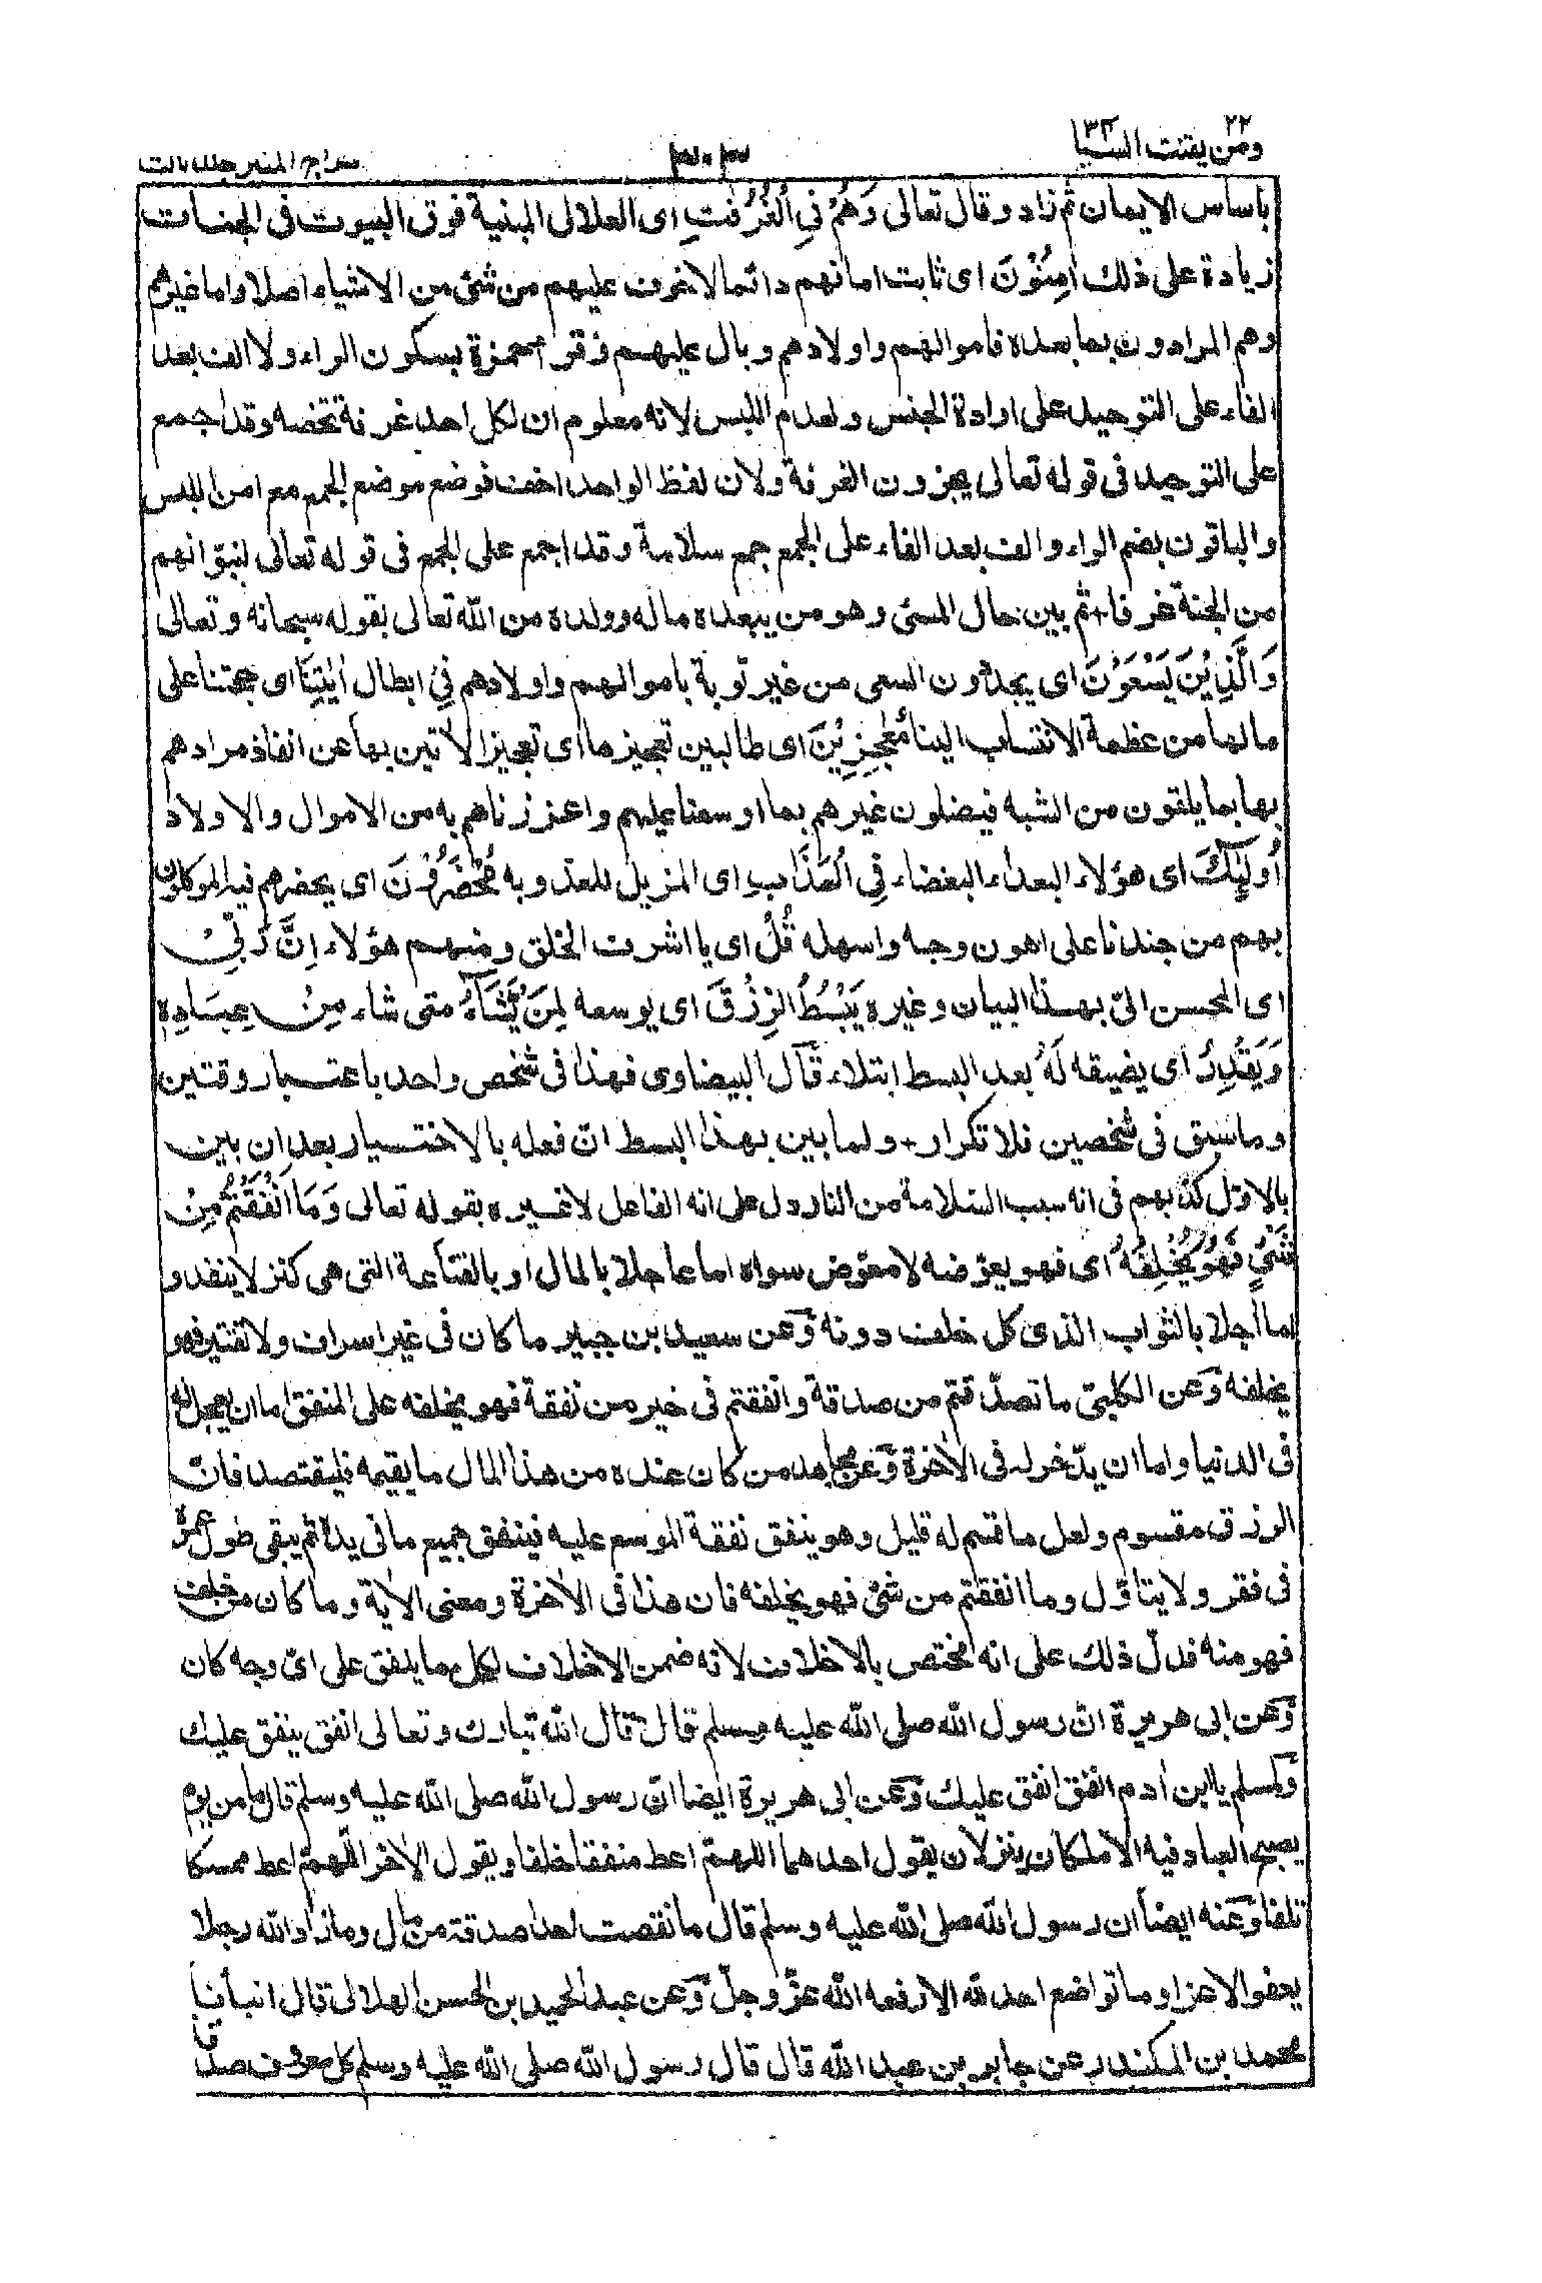 ومن يقنت ٢٢
السبا ٣٤
٣٠٣
سراج المنير جلد ثالث
باساس الايمان ثم زاد وقال تعالى وَهُمْ فِي الْغُرُفٰتِ اى العلالى المبنية فوق البيوت فى الجنات
زيادة على ذلك اٰمِنُوْنَ اى ثابت امانهم دائما لا خوف عليهم من شئ من الاشياء اصلا واما غيرهم
وهم المرادون بما بعده فاموالهم واولادهم وبال عليهم وقرأ حمزة بسكون الراء ولا الف بعد
الفاء على التوحيد على ارادة الجنس ولعدم اللبس لانه معلوم ان لكل احد غرفة تخصه وقد اجمع
على التوحيد فى قوله تعالى يجزون الغرفة ولان لفظ الواحد اخف فوضع موضع الجمع مع امن اللبس
والباقون بضم الراء والف بعد الفاء على الجمع جمع سلامة وقد اجمع على الجمع فى قوله تعالى لنبوّانهم
من الجنة غرفا + ثم بين حال المسئ وهو من يبعده ماله وولده من الله تعالى بقوله سبحانه وتعالى
وَالَّذِيْنَ يَسْعَوْنَ اى يجدّون السعى من غير توبة باموالهم واولادهم فِيْ ابطال اٰيٰتِنَا اى حجتنا على
مالها من عظمة الانتساب الينا مُعٰجِزِيْنَ اى طالبين تعجيزها اى تعجيز الاٰتين بها عن انفاذ مرادهم
بها بما يلقون من الشبه فيضلون غيرهم بما اوسعنا عليهم واعززناهم به من الاموال والاولاد
اُولٰٓئِكَ اى هؤلاء البعداء البغضاء فِي الْعَذَابِ اى المزيل للعذوبة مُحْضَرُوْنَ اى يحضرهم فيه الموكلون
بهم من جندنا على اهون وجه واسهله قُلْ اى يا اشرف الخلق ومنهم هؤلاء اِنَّ رَبِّيْ
اى المحسن الىّ بهذا البيان وغيره يَبْسُطُ الرِّزْقَ اى يوسعه لِمَنْ يَّشَآءُ متى شاء مِنْ عِبَادِهٖ
وَيَقْدِرُ اى يضيقه لَهٗ بعد البسط ابتلاء قال البيضاوى فهذا فى شخص واحد باعتبار وقتين
وما سبق فى شخصين فلا تكرار + ولما بين بهذا البسط انّ فعله بالاختيار بعد ان بين
بالاوّل كذبهم فى انه سبب السّلامة من النار دل على انه الفاعل لا غيره بقوله تعالى وَمَا اَنْفَقْتُمْ مِّنْ
شَيْءٍ فَهُوَ يُخْلِفُهٗ اى فهو يعوّضه لا معوّض سواه اما عاجلا بالمال او بالقناعة التى هى كنز لا ينفد و
اما اٰجلا بالثواب الذى كل خلف دونه وعن سعيد بن جبير ما كان فى غير اسراف ولا تقتير فهو
يخلفه وعن الكلبىّ ما تصدّقتم من صدقة وانفقتم فى خير من نفقة فهو يخلفه على المنفق اما ان يعجل له
فى الدنيا واما ان يدّخر له فى الاٰخرة وعن مجاهد من كان عنده من هذا المال ما يقيمه فليقتصد فانّ
الرزق مقسوم ولعل ما قسم له قليل وهو ينفق نفقة الموسع عليه فينفق جميع ما فى يده ثم يبقى طول عمره
فى فقر ولا يتاوّل وما انفقتم من شئ فهو يخلفه فان هذا فى الاٰخرة ومعنى الاٰية وما كان من خلف
فهو منه فدلّ ذلك على انه مختص بالاخلاف لانه ضمن الاخلاف لكل ما ينفق على اىّ وجه كان
وعن ابى هريرة انّ رسول الله صلى الله عليه وسلم قال قال الله تبارك وتعالى انفق ينفق عليك
ولمسلم يا ابن اٰدم انفق انفق عليك وعن ابى هريرة ايضا انّ رسول الله صلى الله عليه وسلم قال ما من يوم
يصبح العباد فيه الا ملكان ينزلان يقول احدهما اللهمّ اعط منفقا خلفا ويقول الاٰخر اللّهمّ اعط ممسكا
تلفا وعنه ايضا ان رسول الله صلى الله عليه وسلم قال ما نقصت احدا صدقة من مال وما زاد الله رجلا
يعفو الا عزا وما تواضع احد لله الا رفعه الله عزّ وجلّ وعن عبد الحميد بن الحسن الهلالى قال انبأنا
محمد بن المكندر عن جابر بن عبد الله قال قال رسول الله صلى الله عليه وسلم كل معروف صدقة